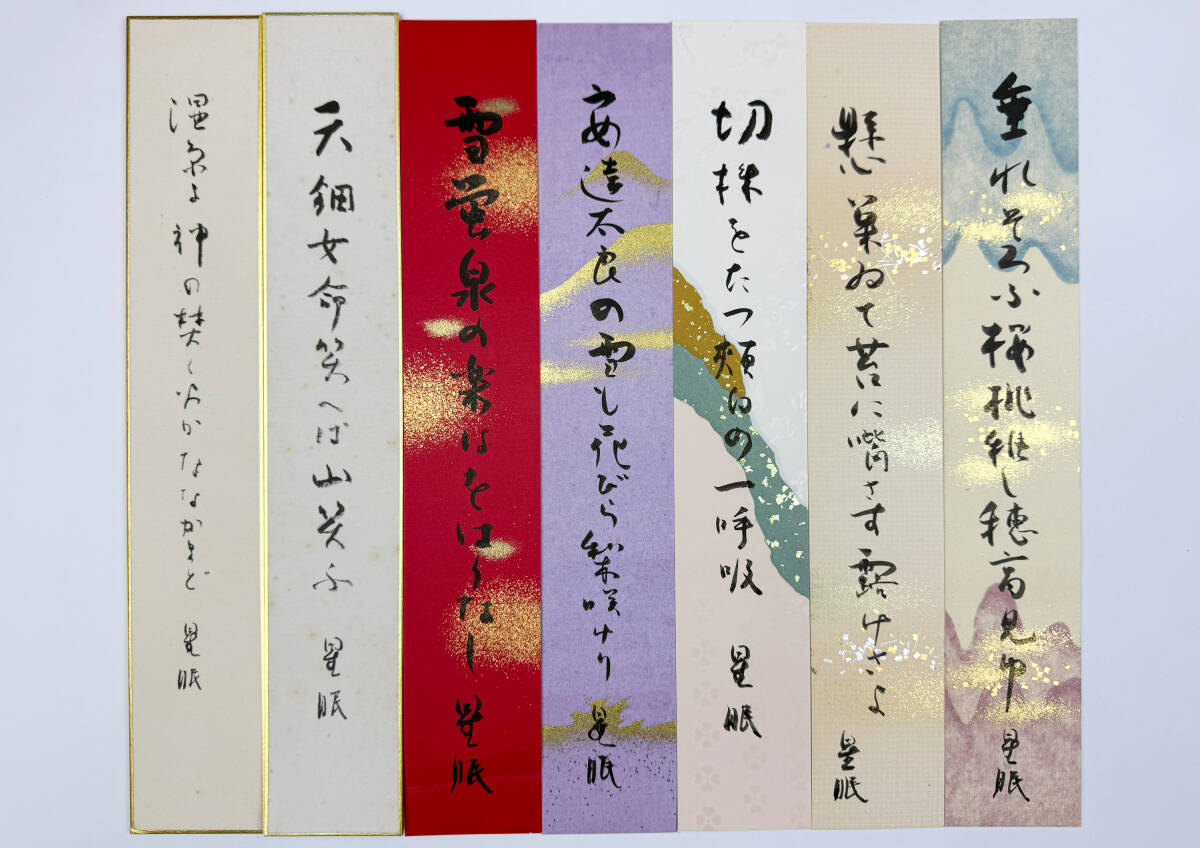 垂れそろふ桜桃稚し穂高見ゆ 星眠
懸巣ゐて苔に嘴さす露けさよ 星眠
切株をたつ頬白の一呼吸 星眠
安達太良の雪も花びら梨咲けり 星眠
雪蛍泉の楽はをはりなし 星眠
天細女命笑へば山笑ふ 星眠
温泉よ神の焚く火かななかまど 星眠